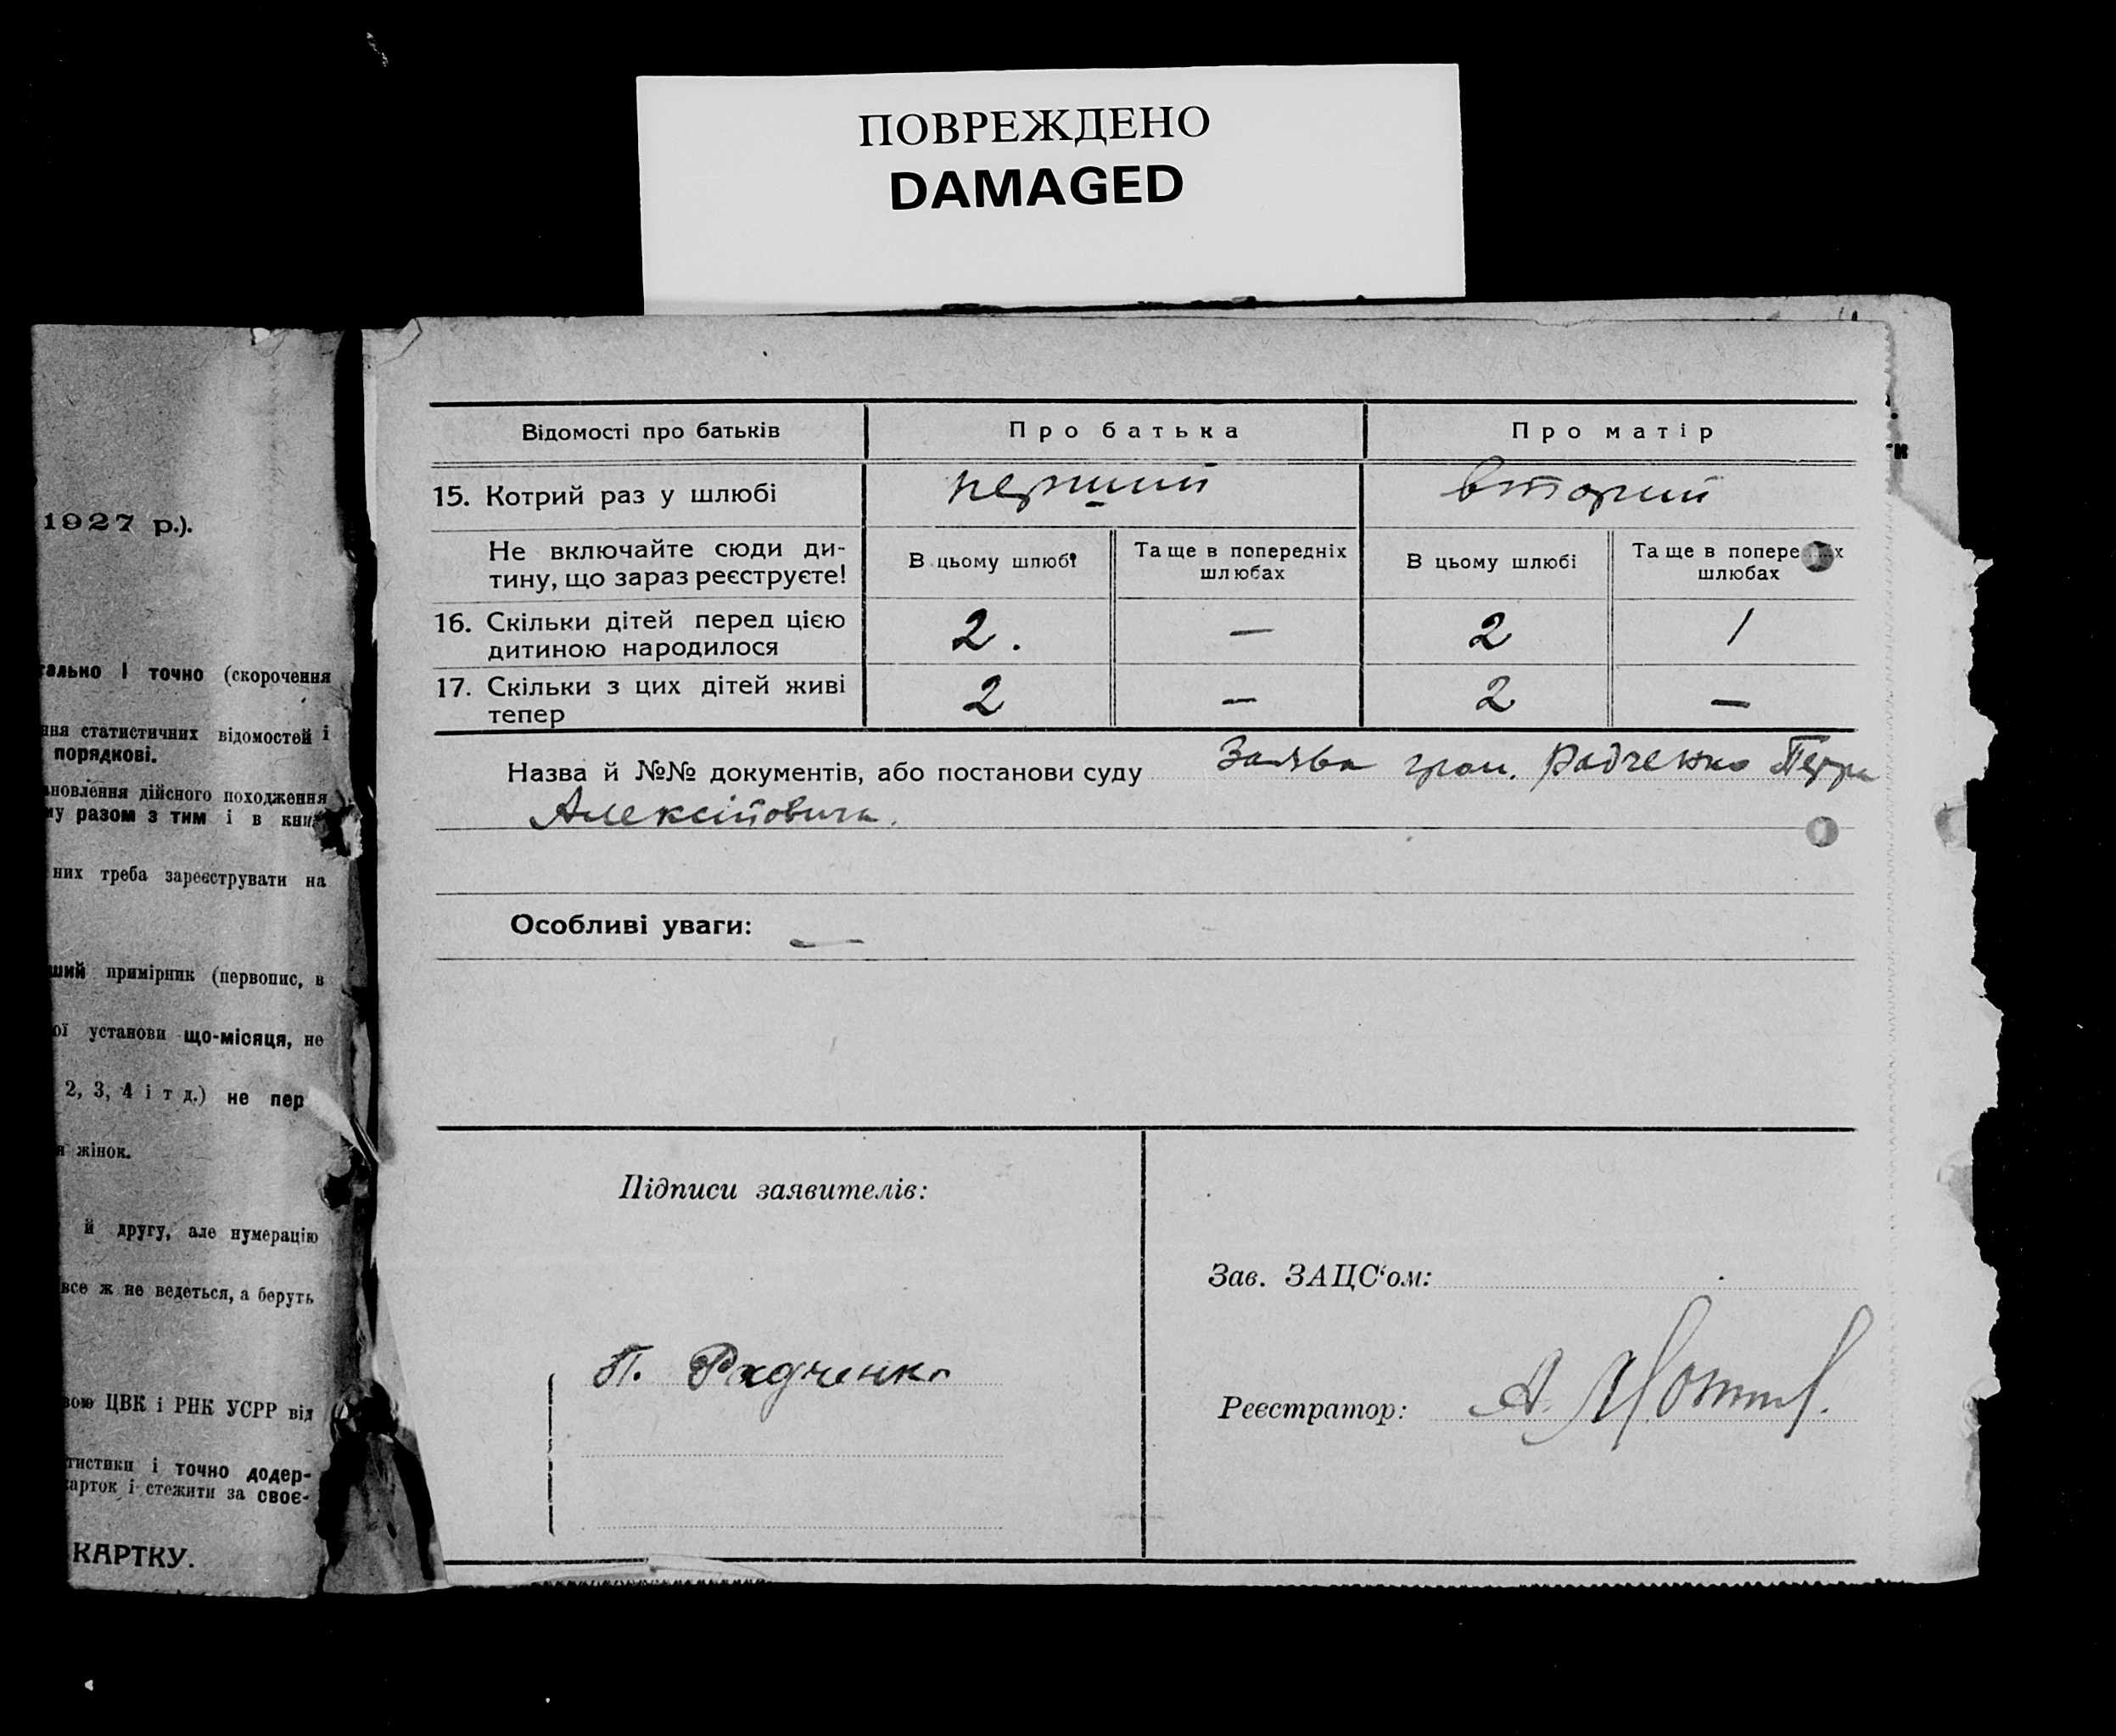 ПОВРЕЖДЕНО
DAMAGED
1927 р.).
тально і точно (скорочення
ння статистичних відомостей і
порядкові.
новлення дійсного походження
му разом з тим і в
них треба зареєструвати на
ший примірник (первопис, в
ої установи що-місяця, не
2, 3, 4 і т д.) не пер
я жінок.
й другу, але нумерацію
все ж не ведеться, а беруть
вою ЦВК і РНК УСРР від
тистики і точно додер-
карток і стежити за своє-
КАРТКУ.
Відомості про батьків Про батька Про матір
15. Котрий раз у шлюбі перший вторий
Не включайте сюди ди-
тину, що зараз реєструєте!
В цьому шлюбі Та ще в попередніх
шлюбах
В цьому шлюбі Та ще в попере х
шлюбах
16. Скільки дітей перед цією
дитиною народилося 2. — 2 1
17. Скільки з цих дітей живі
тепер 2 — 2 —
Назва й №№ документів, або постанови суду Заява гром. Радченко Петра
Алексійовича.
Особливі уваги: —
Підписи заявителів:
П. Радченко
Зав. ЗАЦС'ом:
Реєстратор: А.